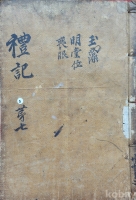 玉藻
明堂位
喪服
禮記
七
kobay